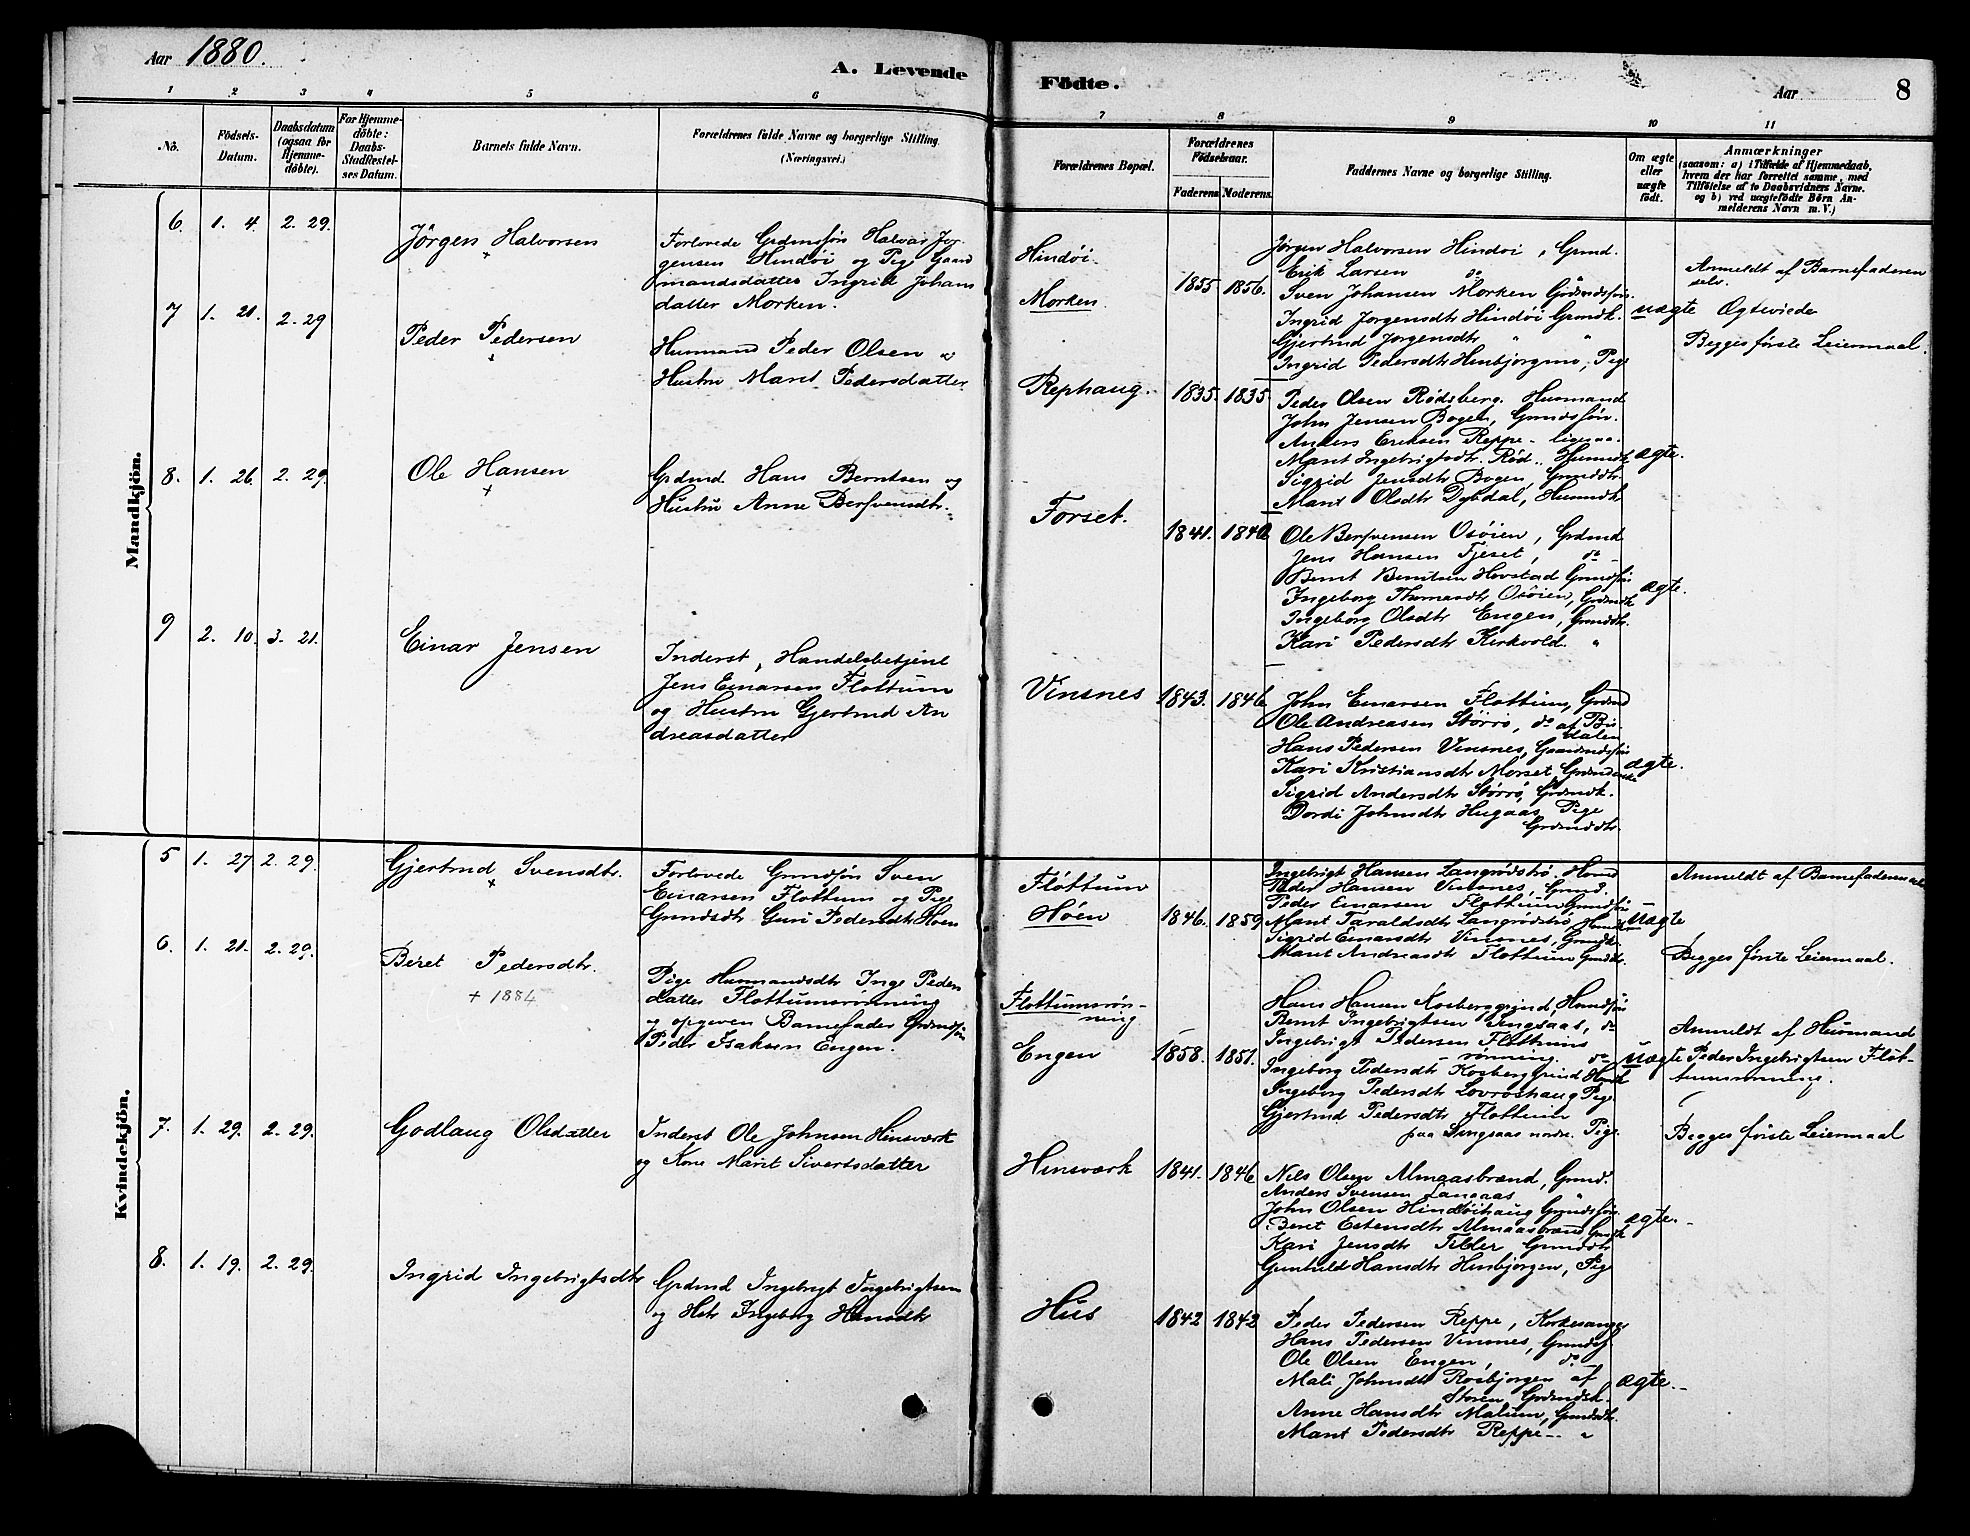 Aar 1880.
A. Levende
Födte.
Aar
8
1 2 3 4 5 6
7 8 9 10 11
No.
Födsels-Datum.
Daabsdatum (ogsaa for Hjemme-döbte).
For Hjemme-döbte: Daabs-Stadfæstel-ses Datum.
Barnets fulde Navn.
Forældrenes fulde Navne og borgerlige Stilling.
(Næringsvei.)
Forældrenes Bopæl.
Forældrenes Födselsaar.
Faderens. Moderens.
Faddernes Navne og borgerlige Stilling.
Om ægte eller uægte födt.
Anmærkninger
(saasom: a) i Tilfælde af Hjemmedaab, hvem der har forrettet samme, med Tilföielse af to Daabsvidners Navne. og b) ved uægtefödte Börn Anmelderens Navn m. V.)
Mandkjön.
6. 1. 4. 2. 29.
Jörgen Halvorsen
+
Forlovede Grdmdsføn Halvar Jør-
gensen Hindøi og Pige Gaard
mandsdatter Ingrid Johans
datter Morken.
Hindøi.
Morken.
1855 1856.
Jörgen Halvorsen Hindøi, Grmd.
Erik Larsen do
Sven Johansen Morken Grdmdsføn.
Ingrid Jorgensdtr Hindøi Grmdk.
Gjertrud Jorgensdtr " "
Ingrid Pedersdtr Hinbjorgen, Pige
uægte
Anmeldt af Barnefaderen
selv.
Ogsviede
Begges første Leiermaal.
7 1. 21. 2. 29
Peder Pedersen
+
Husmand Peder Olsen o
Hustru Marit Pedersdatter
Rephaug.
1835. 1835.
Peder Olsen Rødsberg. Husmand
John Jensen Bogen, Grmdsføn.
Anders Eriksen Reppe - ligesaa.
Marit Ingebrigtsdtr. Rød., Husmdk
Sigrid Jensdtr Bogen, Grmddtr
Marit Olsdtr Dybdal, Husmdk
ægte.
8. 1. 26. 2. 29.
Ole Hansen
+
Grdmd Hans Berntsen og
Hustru Anne Berfvensdtr.
Forset.
1841. 1840
Ole Berfvensen Osøien, Grdmd
Jens Hansen Fjeset, do
Bernt Berntsen Hovstad Grmdføn
Ingeborg Thomasdtr Osøien, Grdmdk
Ingeborg Olsdtr Engen, Grmddtr.
Kari Pedersdtr Kirkvold. "
ægte.
9 2. 10. 3. 21.
Einar Jensen
Inderst, Handelsbetjent
Jens Einarsen Flottum
og Hustru Gjertrud An
dreasdatter
Vinsnes
1843. 1846.
John Einarsen Flottum, Grmd
Ole Andreasen Størrø, do af Bu-
dalen
Hans Pedersen Vinsnes, Gaardmdsføn
Kari Kristiansdtr Morset Grdmdenke
Sigrid Andersdtr Størrø, Grdmdk.
Dordi Johnsdtr Hugaas, Pige
Grdmddtr.
ægte.
Kvindekjön.
5 1. 27 2. 29.
Gjertrud Svensdtr.
+
Forlovede Grmdføn Sven
Einarsen Flottum og Pige
Grmdsdtr Guri Pedersdtr Hoen
Flottum
Høen
1846. 1859
Ingebrigt Hansen Langrødstrø. Hsmd
Peder Hansen Vinsnes, Grmd.
Peder Einarsen Flottum Grmdføn
Marit Taraldsdtr Langrødstrø,
Sigrid Einarsdtr Vinsnes, Grmdk.
Marit Andreasdtr Flottum Grmdk.
uægte
Anmeldt af Barnefaderen
Begges første Leiermaal.
6. 1. 21. 2. 29.
Beret Pedersdtr.
+ 1884
Pige Husmandsdtr Inge Peders
datter Flottumsrønning
og opgiven Barnefader Grdmdføn
Peder Isaksen Engen.
Flottumsrøn-
ning
Engen
1858. 1851.
Hans Hansen Kosberggrind, Husmdføn
Bernt Ingebrigtsen Singsaas, do
Ingebrigt Pedersen Flottums
rønning. do
Ingeborg Pedersdtr Kosberggrind Hsmdk
Ingeborg Pedersdtr Lovroshaug Pige
Gjertrud Pedersdtr Flottum
paa Singsaas nordre. Pige.
uægte
Anmeldt af Husmand
Peder Ingebrigtsen Flot-
tumsrønning.
Begges første Leiermaal
7. 1. 29. 2. 29.
Godlaug Olsdatter
Inderst Ole Johnsen Hinsværk
og Kone Marit Sivertsdatter
Hinsværk
1841. 1846
Nils Olsen Almaasbrænd, Grmd.
Anders Svensen Langaas
John Olsen Hindøihaug Grmdsføn.
Beret Estensdtr Almaasbrænd Grmdk
Kari Jensdtr Tiller Grmddtr
Gunhild Hansdtr Hinbjørgen, Pige
ægte.
8. 1. 19. 2. 29.
Ingrid Ingebrigtsdtr
Grdmd Ingebrigt Ingebrigtsen
og Hstr Ingeborg Hansdtr
Hus
1842 1842
Peder Pedersen Reppe, Kirkesanger
Hans Pedersen Vinsnes, Grmdsf.
Ole Olsen Engen, do
Mali Johnsdtr Rosbjorgen af
Støren Grdmdsk.
Anne Hansdtr Malum, Grmddtr.
Marit Pedersdtr Reppe - "
ægte.